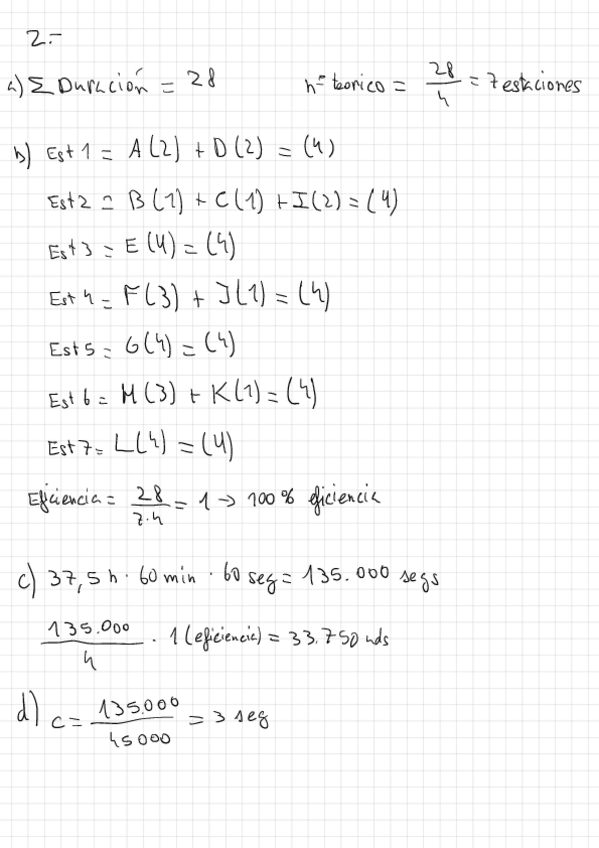 2.-
a) Σ Duración = 28 nº teorico = 28/4 = 7 estaciones
b) Est 1 = A(2) + D(2) = (4)
Est 2 = B(1) + C(1) + I(2) = (4)
Est 3 = E(4) = (4)
Est 4 = F(3) + J(1) = (4)
Est 5 = G(4) = (4)
Est 6 = H(3) + K(1) = (4)
Est 7 = L(4) = (4)
Eficiencia = 28/7·4 = 1 → 100% eficiencia
c) 37,5 h · 60 min · 60 seg = 135.000 segs
135.000/4 · 1 (eficiencia) = 33.750 uds
d) c = 135.000/45000 = 3 seg